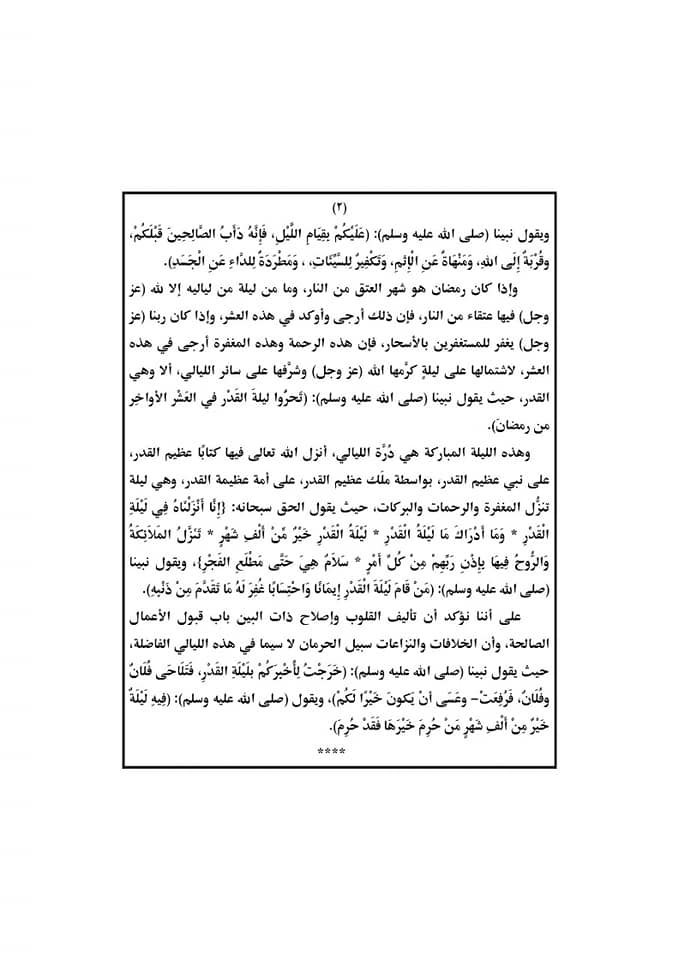 (٢)
ويقول نبينا (صلى الله عليه وسلم): (عَلَيْكُمْ بِقِيَامِ اللَّيْلِ، فَإِنَّهُ دَأَبُ الصَّالِحِينَ قَبْلَكُمْ،
وقُرْبَةٌ إِلَى اللهِ، وَمَنْهَاةٌ عَنِ الْإِثمِ، وَتَكْفِيرٌ لِلسَّيِّئَاتِ، ، وَمَطْرَدَةٌ لِلدَّاءِ عَنِ الْجَسَدِ).
وإذا كان رمضان هو شهر العتق من النار، وما من ليلة من لياليه إلا لله (عز
وجل) فيها عتقاء من النار، فإن ذلك أرجى وأوكد في هذه العشر، وإذا كان ربنا (عز
وجل) يغفر للمستغفرين بالأسحار، فإن هذه الرحمة وهذه المغفرة أرجى في هذه
العشر، لاشتمالها على ليلةٍ كرَّمها الله (عز وجل) وشرَّفها على سائر الليالي، ألا وهي
القدر، حيث يقول نبينا (صلى الله عليه وسلم): (تَحرَّوا ليلةَ القَدْر في العَشْر الأواخِر
من رمضان).
وهذه الليلة المباركة هي دُرَّة الليالي، أنزل الله تعالى فيها كتابًا عظيم القدر،
على نبي عظيم القدر، بواسطة ملَك عظيم القدر، على أمة عظيمة القدر، وهي ليلة
تنزُّل المغفرة والرحمات والبركات، حيث يقول الحق سبحانه: {إِنَّا أَنْزَلْنَاهُ فِي لَيْلَةِ
الْقَدْرِ * وَمَا أَدْرَاكَ مَا لَيْلَةُ الْقَدْرِ * لَيْلَةُ الْقَدْرِ خَيْرٌ مِّنْ أَلْفِ شَهْرٍ * تَنَزَّلُ المَلَائِكَةُ
وَالرُّوحُ فِيهَا بِإِذْنِ رَبِّهِمْ مِنْ كُلِّ أَمْرٍ * سَلَامٌ هِيَ حَتَّى مَطْلَعِ الفَجْرِ}، ويقول نبينا
(صلى الله عليه وسلم): (مَنْ قَامَ لَيْلَةَ الْقَدْرِ إِيمَانًا وَاحْتِسَابًا غُفِرَ لَهُ مَا تَقَدَّمَ مِنْ ذَنْبِهِ).
على أننا نؤكد أن تأليف القلوب وإصلاح ذات البين باب قبول الأعمال
الصالحة، وأن الخلافات والنزاعات سبيل الحرمان لا سيما في هذه الليالي الفاضلة،
حيث يقول نبينا (صلى الله عليه وسلم): (خَرَجْتُ لِأُخْبِرَكُمْ بِلَيْلَةِ القَدْرِ، فَتَلَاحَى فُلَانٌ
وفُلَانٌ، فَرُفِعَتْ- وعَسَى أنْ يَكونَ خَيْرًا لَكُمْ)، ويقول (صلى الله عليه وسلم): (فِيهِ لَيْلَةٌ
خَيْرٌ مِنْ أَلْفِ شَهْرٍ مَنْ حُرِمَ خَيْرَهَا فَقَدْ حُرِمَ).
****